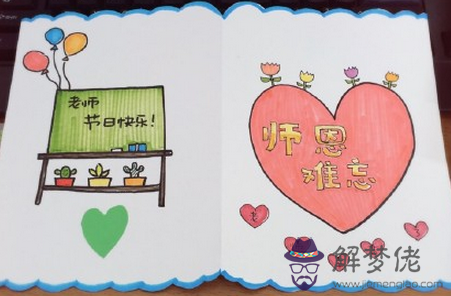 老师
节日快乐!
师恩
难忘
解梦佬